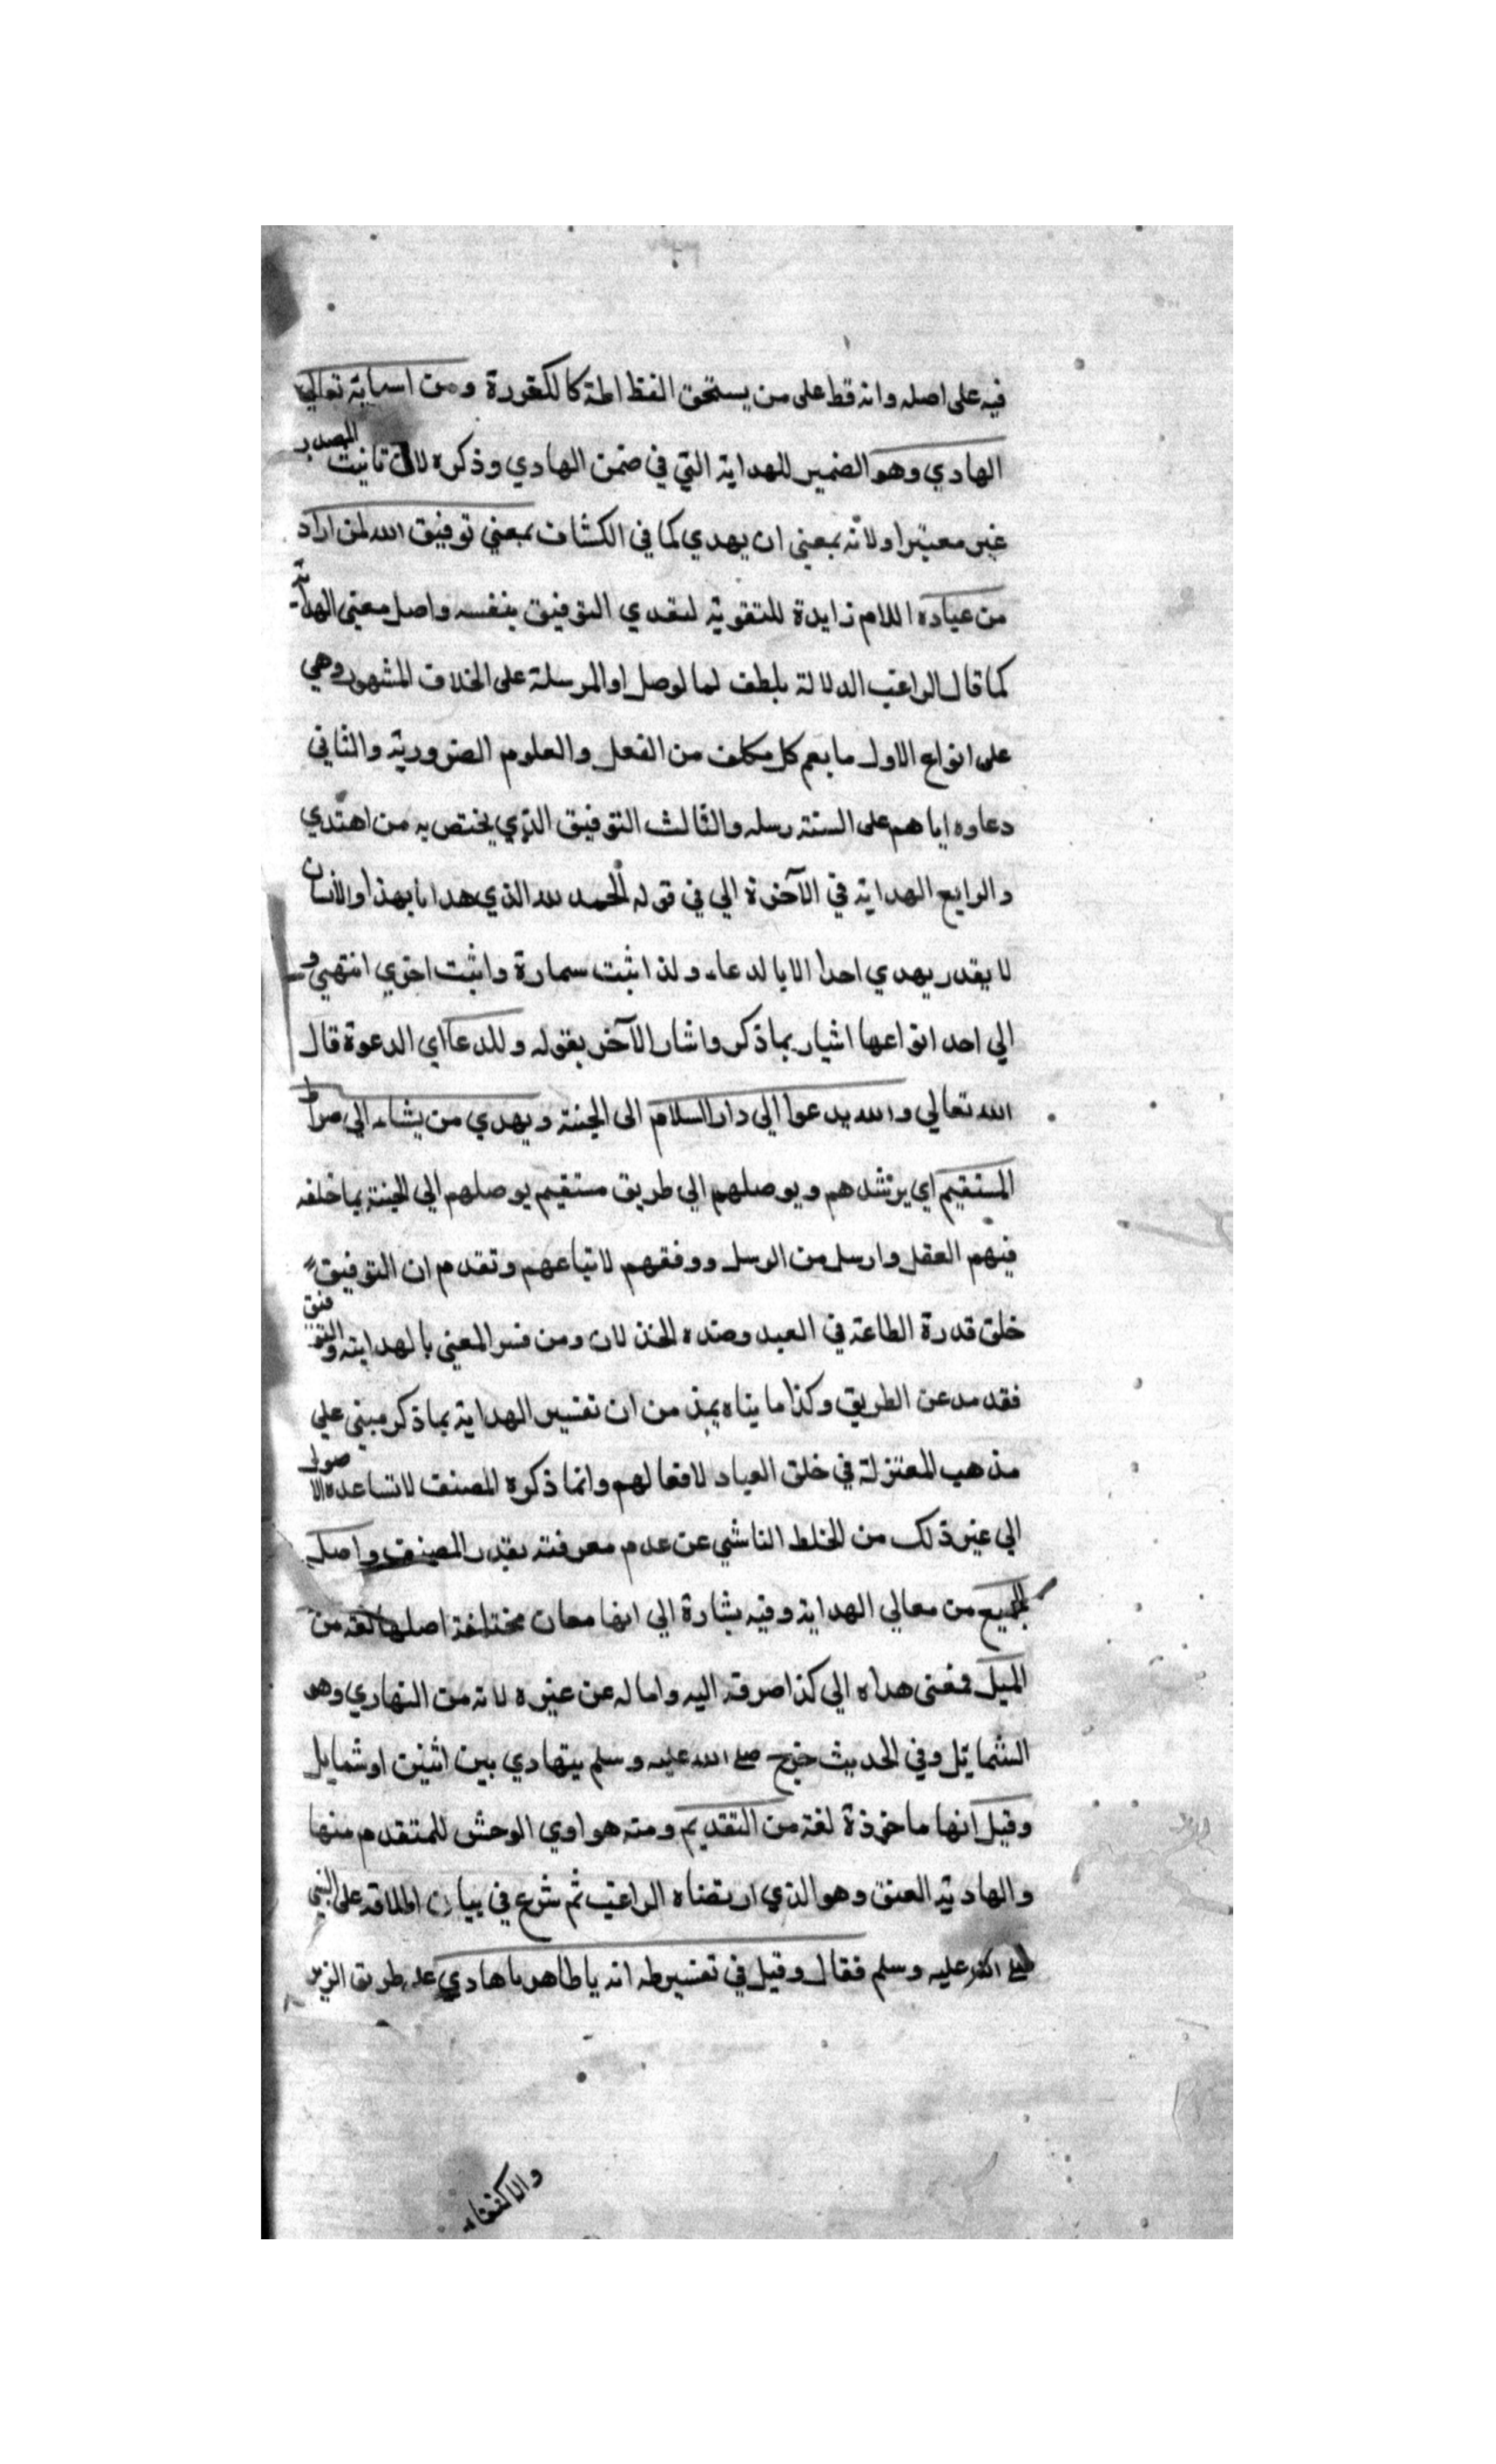 فيه على اصله وانه قط على من يستحق الفظاظة كالكفرة ومن اسمائه تعالى
الهادي وهو الضمير للهداية التي في ضمن الهادي وذكره لان تانيث المصدر
غير معتبر او لانه بمعنى ان يهدي كما في الكشاف بمعني توفيق الله لمن اراد
من عباده اللام زايدة للتقوية لتعدي التوفيق بنفسه واصل معنى الهداية
كما قال الراغب الدلالة بلطف لما لوصل او المرسلة على الخلاف المشهور وهي
على انواع الاول ما يعم كل مكلف من الفعل والعلوم الضرورية والثاني
دعاوه اياهم على السنة رسله والثالث التوفيق الذي يختص به من اهتدي
والرابع الهداية في الآخرة الي في قوله الحمد لله الذي هدانا بهذا والانسان
لا يقدر يهدي احدا الا بالدعاء ولذا اثبت سمارة واثبت اخري انتهي و
الي احد انواعها اشار بما ذكر واشار الآخر بقوله وللدعا اي الدعوة قال
الله تعالي والله يدعوا الي دار السلام الى الجنة ويهدي من يشاء الي صراط
المستقيم اي يرشدهم ويوصلهم الي طريق مستقيم يوصلهم الي الجنة بما خلفه
فيهم العقل وارسل من الرسل ووفقهم لاتباعهم وتقدم ان التوفيق
خلق قدرة الطاعة في العبد وضده الخذلان ومن فسر المعنى بالهداية والتوفيق
فقد مد عن الطريق وكذا ما يناه من ان تفسير الهداية بما ذكر مبني علي
مذهب المعتزلة في خلق العباد لافعالهم وانما ذكره المصنف لا تساعده الاصول
الي غير ذلك من الخلط الناشي عن عدم معرفته بقدر المصنف واصل
الجميع من معالي الهداية وفيه بشارة الي انها معان مختلفة اصلها لغة من
الميل فمعنى هداه الي كذا صرفه اليه واماله عن غيره لانه من التهادي وهو
التمايل وفي الحديث خرج صلى الله عليه وسلم يتهادي بين اثنين او شمايل
وقيل انها ماخوذة لغة من التقديم ومنه هوادي الوحش للمتقدم منها
والهادية العنق وهو الذي ارتضاه الراغب ثم شرع في بيان اطلاقه على النبي
صلى الله عليه وسلم فقال وقيل في تفسير طه انه يا طاهر يا هادي
والاكتفاء